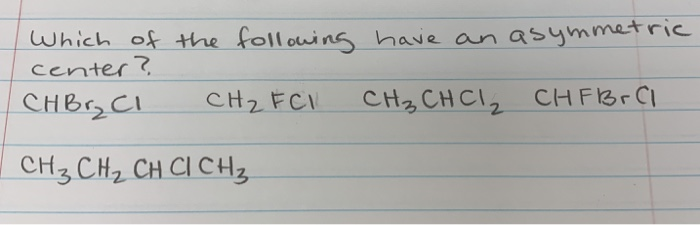 Which of the following have an asymmetric
center?
CHBr₂Cl CH₂FCl CH₃CHCl₂ CHFBrCl
CH₃CH₂CHClCH₃